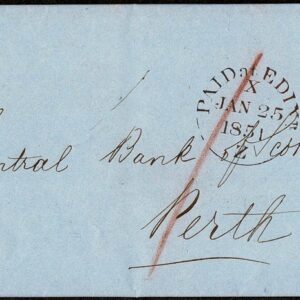 PAID at EDIN
X
JAN 25
1851
Z
ntral Bank of Scot
Perth